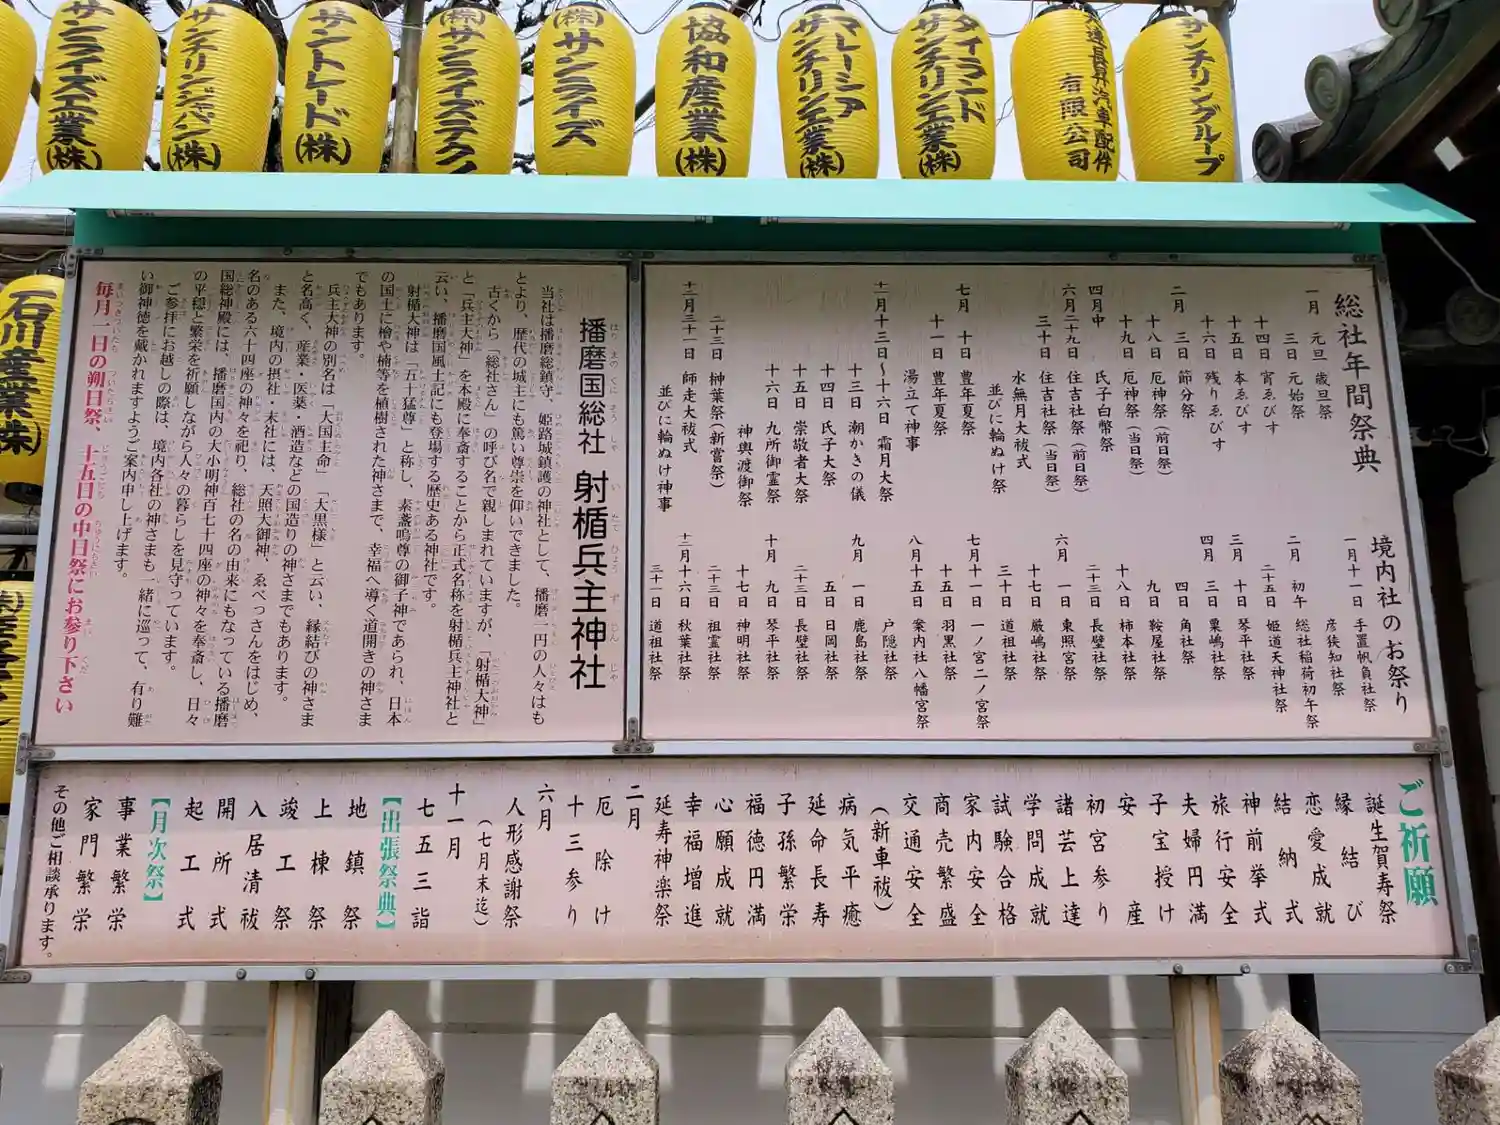 サンライズ工業(株)
サンチリンジャパン(株)
サントレード(株)
(株)サンライズテクノ
(株)サンライズ
協和産業(株)
マレーシア
サンチリン工業(株)
タイランド
サンチリン工業(株)
大連長昇汽車配件
有限公司
サンチリングループ
石川産業(株)
総社年間祭典
一月 元旦 歳旦祭
三日 元始祭
十四日 宵ゑびす
十五日 本ゑびす
十六日 残りゑびす
二月 三日 節分祭
十八日 厄神祭(前日祭)
十九日 厄神祭(当日祭)
四月中 氏子白幣祭
六月二十九日 住吉社祭(前日祭)
三十日 住吉社祭(当日祭)
水無月大祓式
並びに輪ぬけ祭
七月 十日 豊年夏祭
十一日 豊年夏祭
湯立て神事
十一月十三日〜十六日 霜月大祭
十三日 潮かきの儀
十四日 氏子大祭
十五日 崇敬者大祭
十六日 九所御霊祭
神輿渡御祭
二十三日 榊葉祭(新嘗祭)
十二月三十一日 師走大祓式
並びに輪ぬけ神事
境内社のお祭り
一月十一日 手置帆負社祭
彦狭知社祭
二月 初午 総社稲荷初午祭
二十五日 姫道天神社祭
三月 十日 琴平社祭
四月 三日 粟嶋社祭
四日 角社祭
九日 鞍屋社祭
十八日 柿本社祭
二十三日 長壁社祭
六月 一日 東照宮祭
十七日 厳嶋社祭
三十日 道祖社祭
七月十一日 一ノ宮二ノ宮祭
十五日 羽黒社祭
八月十五日 案内社八幡宮祭
戸隠社祭
九月 一日 鹿島社祭
五日 日岡社祭
二十三日 長壁社祭
十月 九日 琴平社祭
十七日 神明社祭
二十三日 祖霊社祭
十二月十六日 秋葉社祭
三十一日 道祖社祭
播磨国総社 射楯兵主神社
当社は播磨総鎮守、姫路城鎮護の神社として、播磨一円の人々はも
とより、歴代の城主にも篤い尊崇を仰いできました。
古くから「総社さん」の呼び名で親しまれていますが、「射楯大神」
と「兵主大神」を本殿に奉斎することから正式名称を射楯兵主神社と
云い、播磨国風土記にも登場する歴史ある神社です。
射楯大神は「五十猛尊」と称し、素盞嗚尊の御子神であられ、日本
の国土に檜や楠等を植樹された神さまで、幸福へ導く道開きの神さま
でもあります。
兵主大神の別名は「大国主命」「大黒様」と云い、縁結びの神さま
と名高く、産業・医薬・酒造などの国造りの神さまでもあります。
また、境内の摂社・末社には、天照大御神、ゑべっさんをはじめ、
名のある六十四座の神々を祀り、総社の名の由来にもなっている播磨
国総神殿には、播磨国内の大小明神百七十四座の神々を奉斎し、日々
の平穏と繁栄を祈願しながら人々の暮らしを見守っています。
ご参拝にお越しの際は、境内各社の神さまも一緒に巡って、有り難
い御神徳を戴かれますようご案内申し上げます。
毎月一日の朔日祭、十五日の中日祭にお参り下さい
ご祈願
誕生賀寿祭
縁結び
恋愛成就
結納式
神前挙式
旅行安全
夫婦円満
子宝授け
安産
初宮参り
諸芸上達
学問成就
試験合格
家内安全
商売繁盛
交通安全
(新車祓)
病気平癒
延命長寿
子孫繁栄
福徳円満
心願成就
幸福増進
延寿神楽祭
二月
厄除け
十三参り
六月
人形感謝祭
(七月末迄)
十一月
七五三詣
【出張祭典】
地鎮祭
上棟祭
竣工祭
入居清祓
開所式
起工式
【月次祭】
事業繁栄
家門繁栄
その他ご相談承ります。